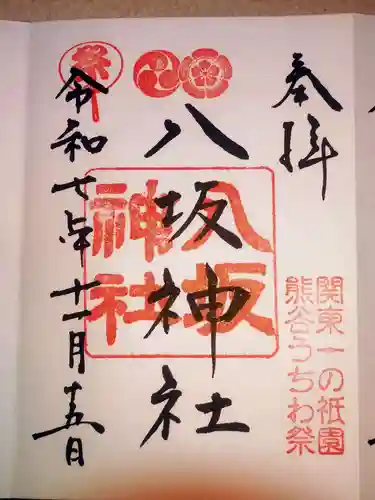 奉拝
関東一の祇園
熊谷うちわ祭
八坂神社
八坂
神社
祭
令和七年十一月十五日